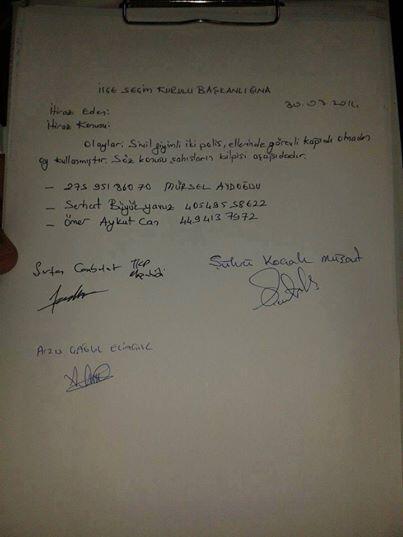 İLÇE SEÇİM KURULU BAŞKANLIĞINA
30.03.2014
İtiraz Eden:
İtiraz Konusu:
Olaylar: Sivil giyimli iki polis, ellerinde görevli kağıdı olmadan
oy kullanmıştır. Söz konusu şahısların bilgisi aşağıdadır.
- 275 951 360 70 MÜRSEL AYDOĞDU
- Serhat Büyükyavuz 405495 58622
- Ömer Aykut Can 449413 7972
Canbulat TKP
Şükrü Kocak müşahit
Arzu